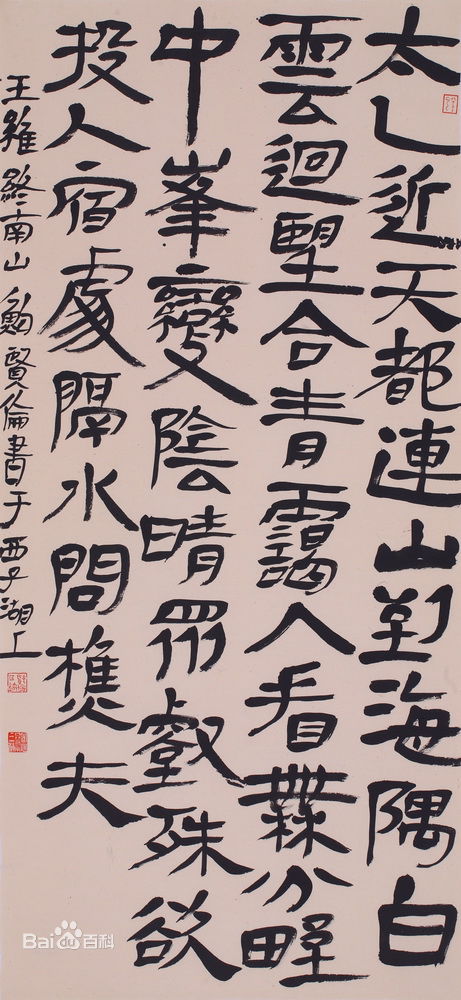 太乙近天都連山到海隅白
雲迴望合青靄入看無分野
中峯變陰晴眾壑殊欲
投人宿處隔水問樵夫
王維終南山鮑賢倫書于西子湖上
Baidu百科